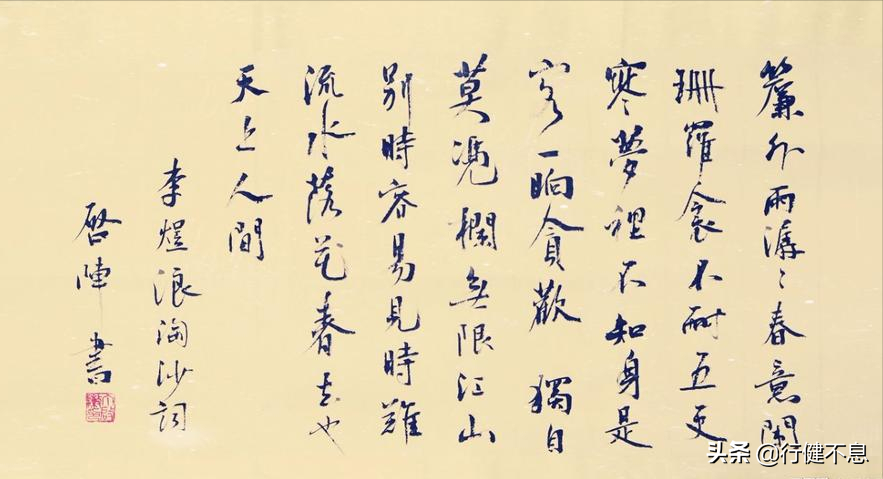 簾外雨潺々春意闌
珊羅衾不耐五更
寒夢裡不知身是
客一晌貪歡 獨自
莫馮欄無限江山
別時容易見時難
流水落花春去也
天上人間
李煜浪淘沙詞
啓陣書
头条 @行健不息